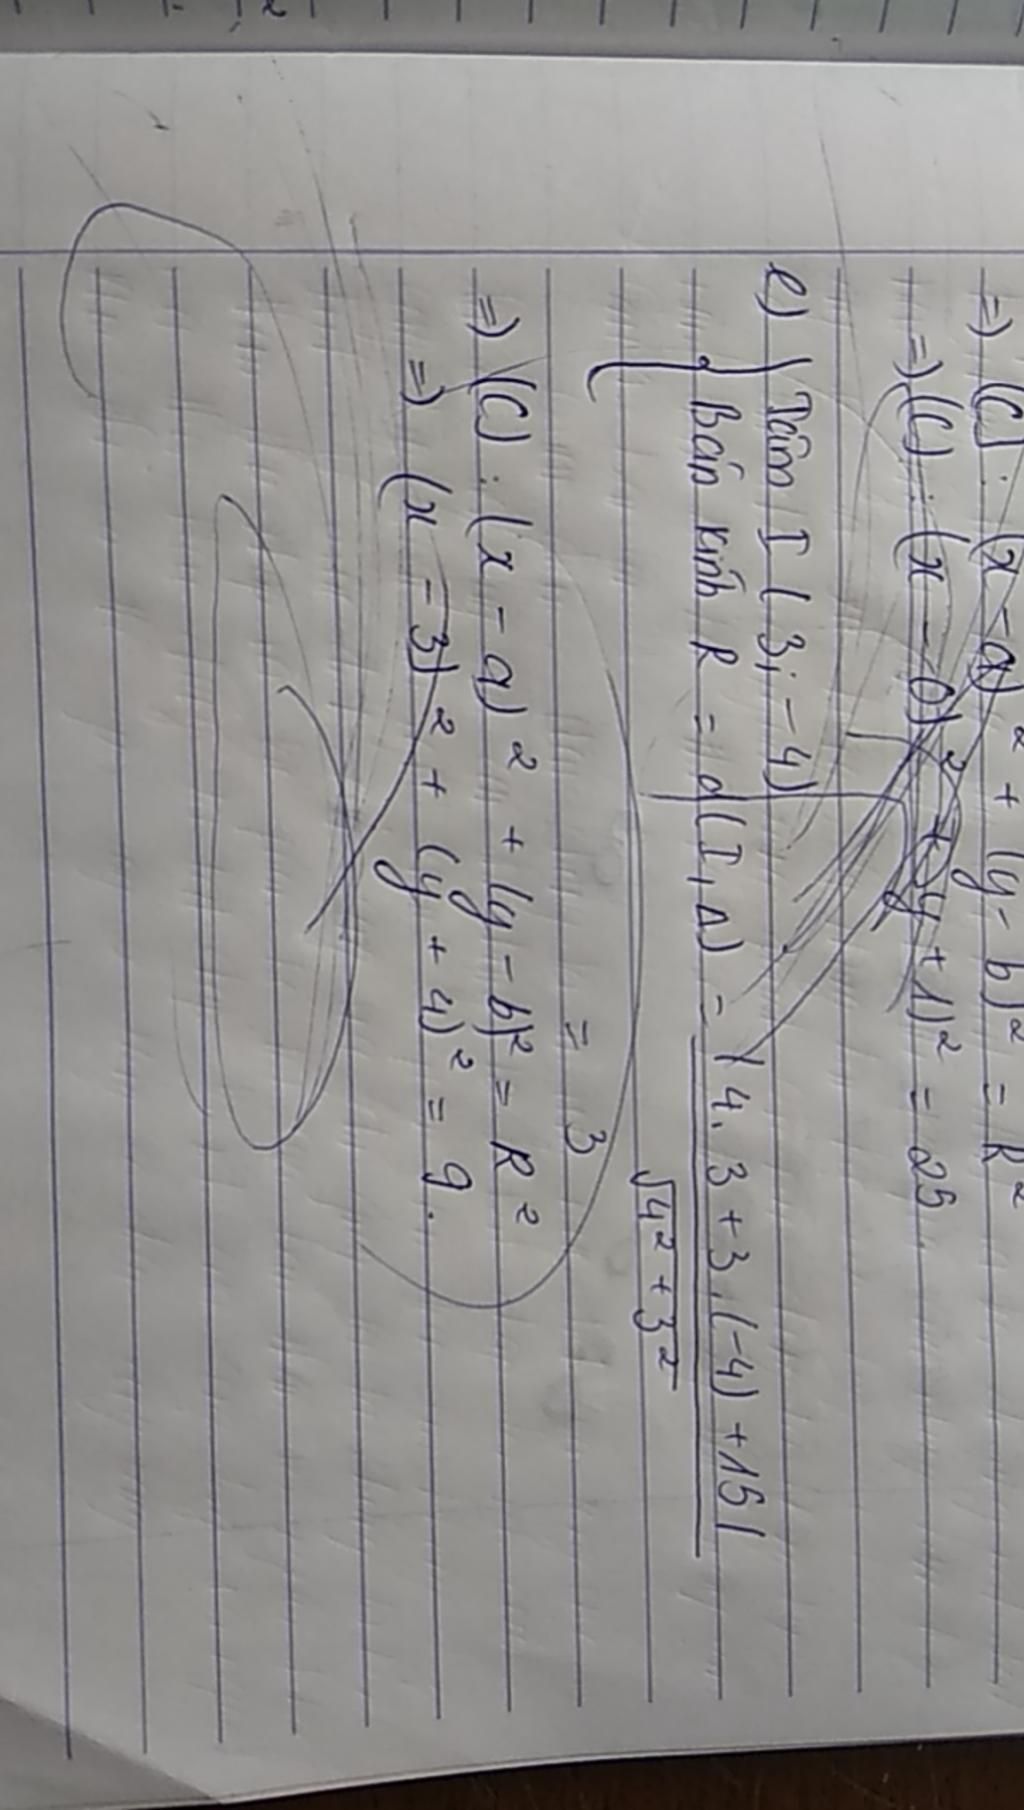 => (C): (x - a)² + (y - b)² = R²
=> (C): (x - 0)² + (y + 1)² = 25
e) Tâm I (3; -4)
Bán kính R = d(I, Δ) = |4.3 + 3.(-4) + 15|
√4² + 3²
= 3
=> (C): (x - a)² + (y - b)² = R²
=> (x - 3)² + (y + 4)² = 9.